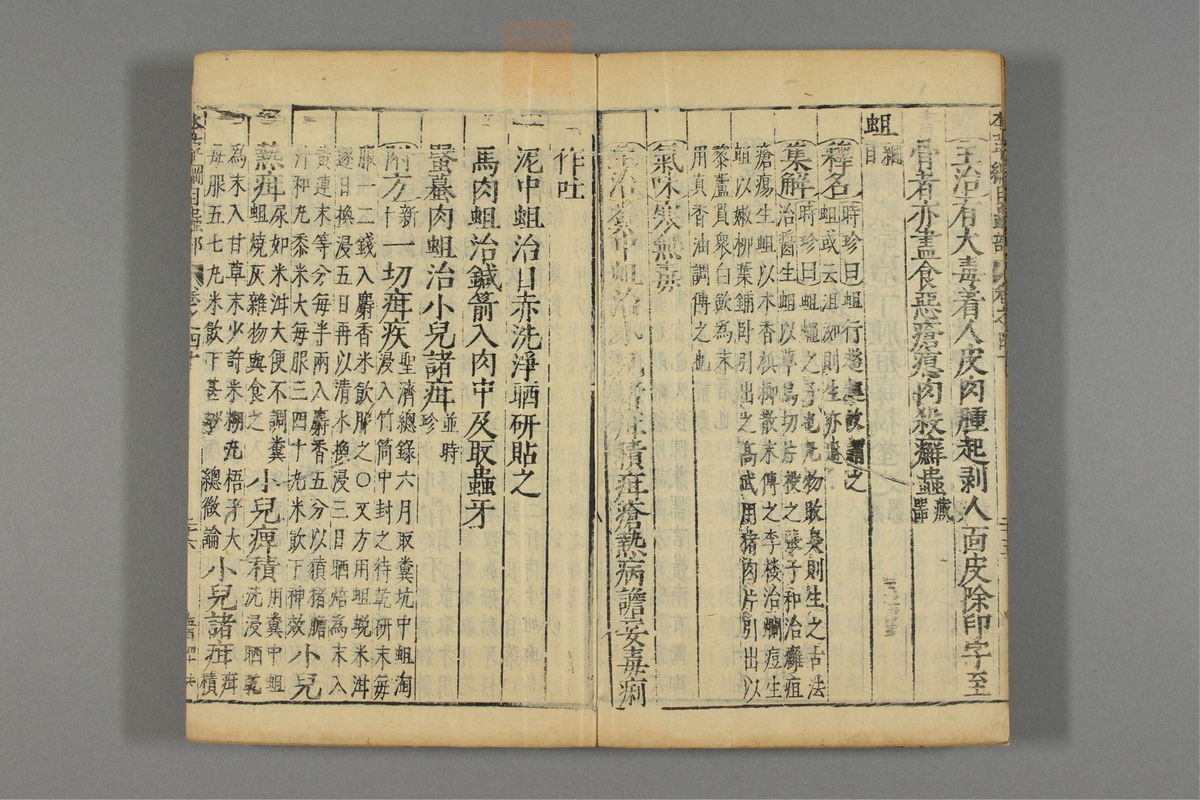 主治有大毒着人皮肉腫起剥人面皮除印字至
骨者亦盡食惡瘡瘜肉殺癬蟲藏器
蛆綱目
釋名時珍曰蛆行趑趄故謂之
蛆或云沮洳則生亦通
集解時珍曰蛆蠅之子也凡物敗臭則生之古法
治醤生蛆以草烏切片投之張子和治癰疽
瘡瘍生蛆以木香檳榔散末傅之李樓治爛痘生
蛆以嫩柳葉鋪卧引出之高武用猪肉片引出以
藜蘆貫衆白歛為末
用真香油調傅之也
氣味寒無毒
主治糞中蛆治小兒諸疳積疳瘡熱病譫妄毒痢
作吐
泥中蛆治目赤洗淨晒研貼之
馬肉蛆治鍼箭入肉中及取蟲牙
蝦蟇肉蛆治小兒諸疳並時珍
附方新十一切疳疾聖濟總錄六月取糞坑中蛆淘
浸入竹筒中封之待乾研末每
服一二錢入麝香米飲服之〇又方用蛆蛻米泔
逐日換浸五日再以清水換浸三日晒焙為末入
黄連末等分每半兩入麝香五分以獖猪膽
汁和丸黍米大每服三四十丸米飲下神效小兒
熱疳尿如米泔大便不調糞
蛆燒灰雜物與食之小兒痺積用糞中蛆
洗浸晒乾
為末入甘草末少許米糊丸梧子大
每服五七丸米飲下甚妙總微論小兒諸疳疳積
本草綱目蟲部